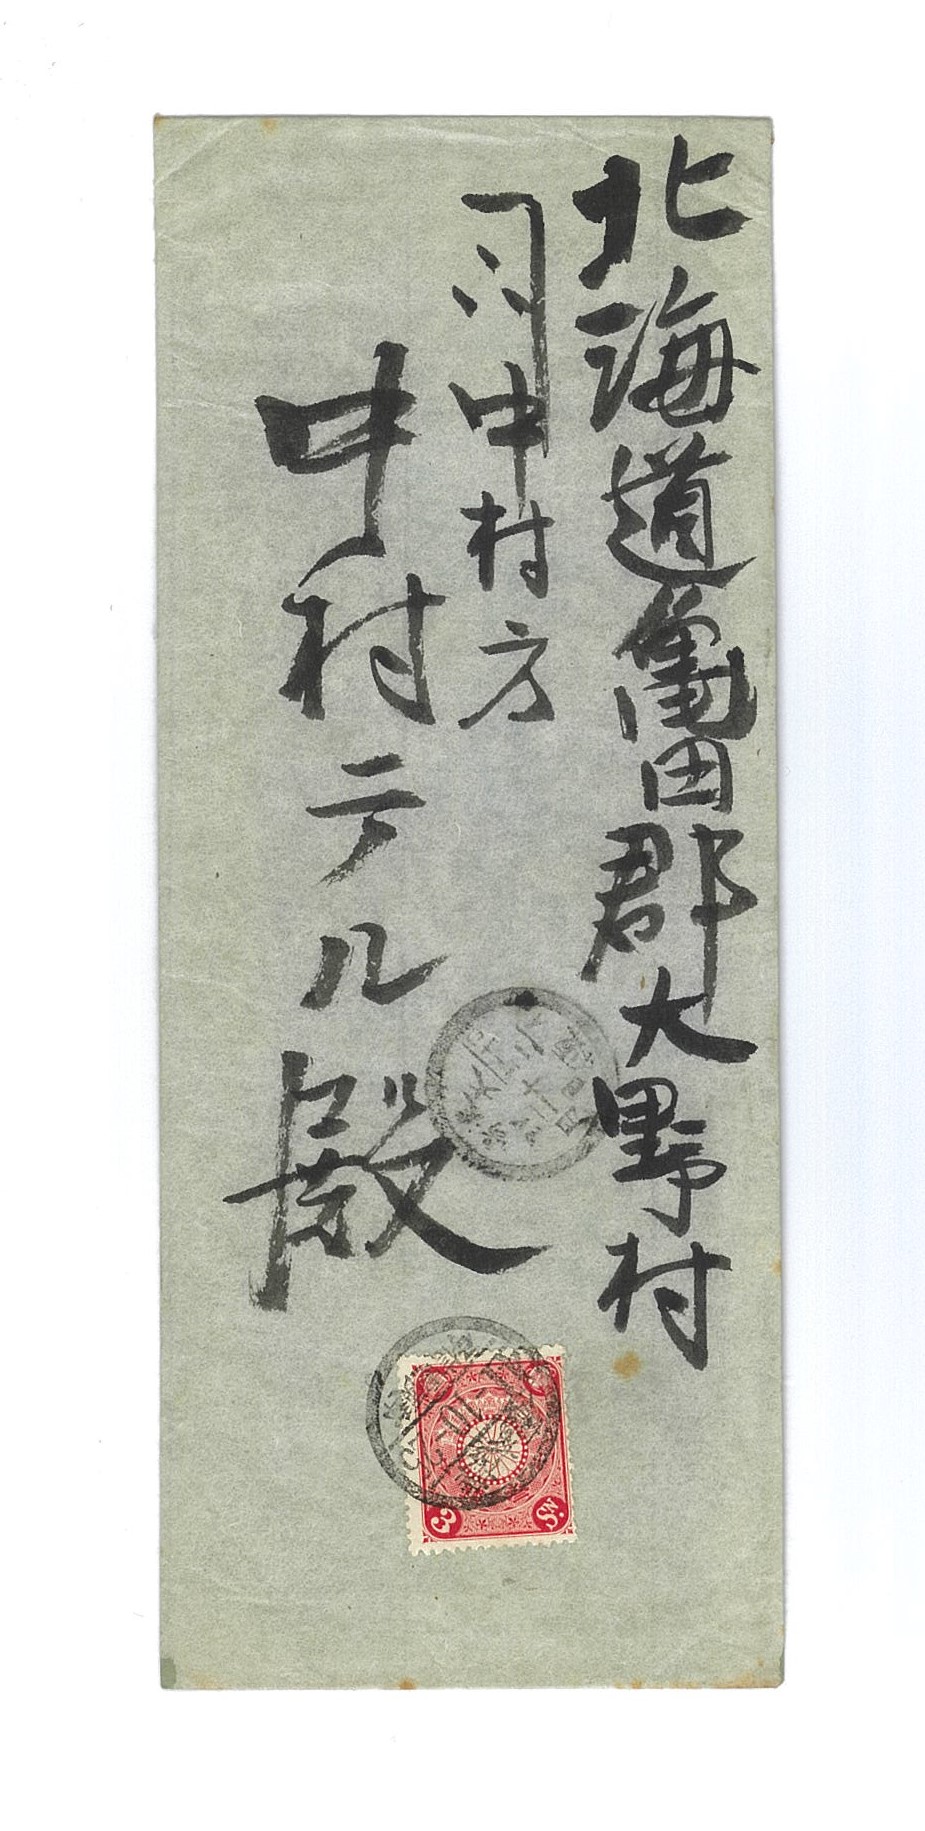 北海道亀田郡大野村
中村方
中村テル殿
3 SN.